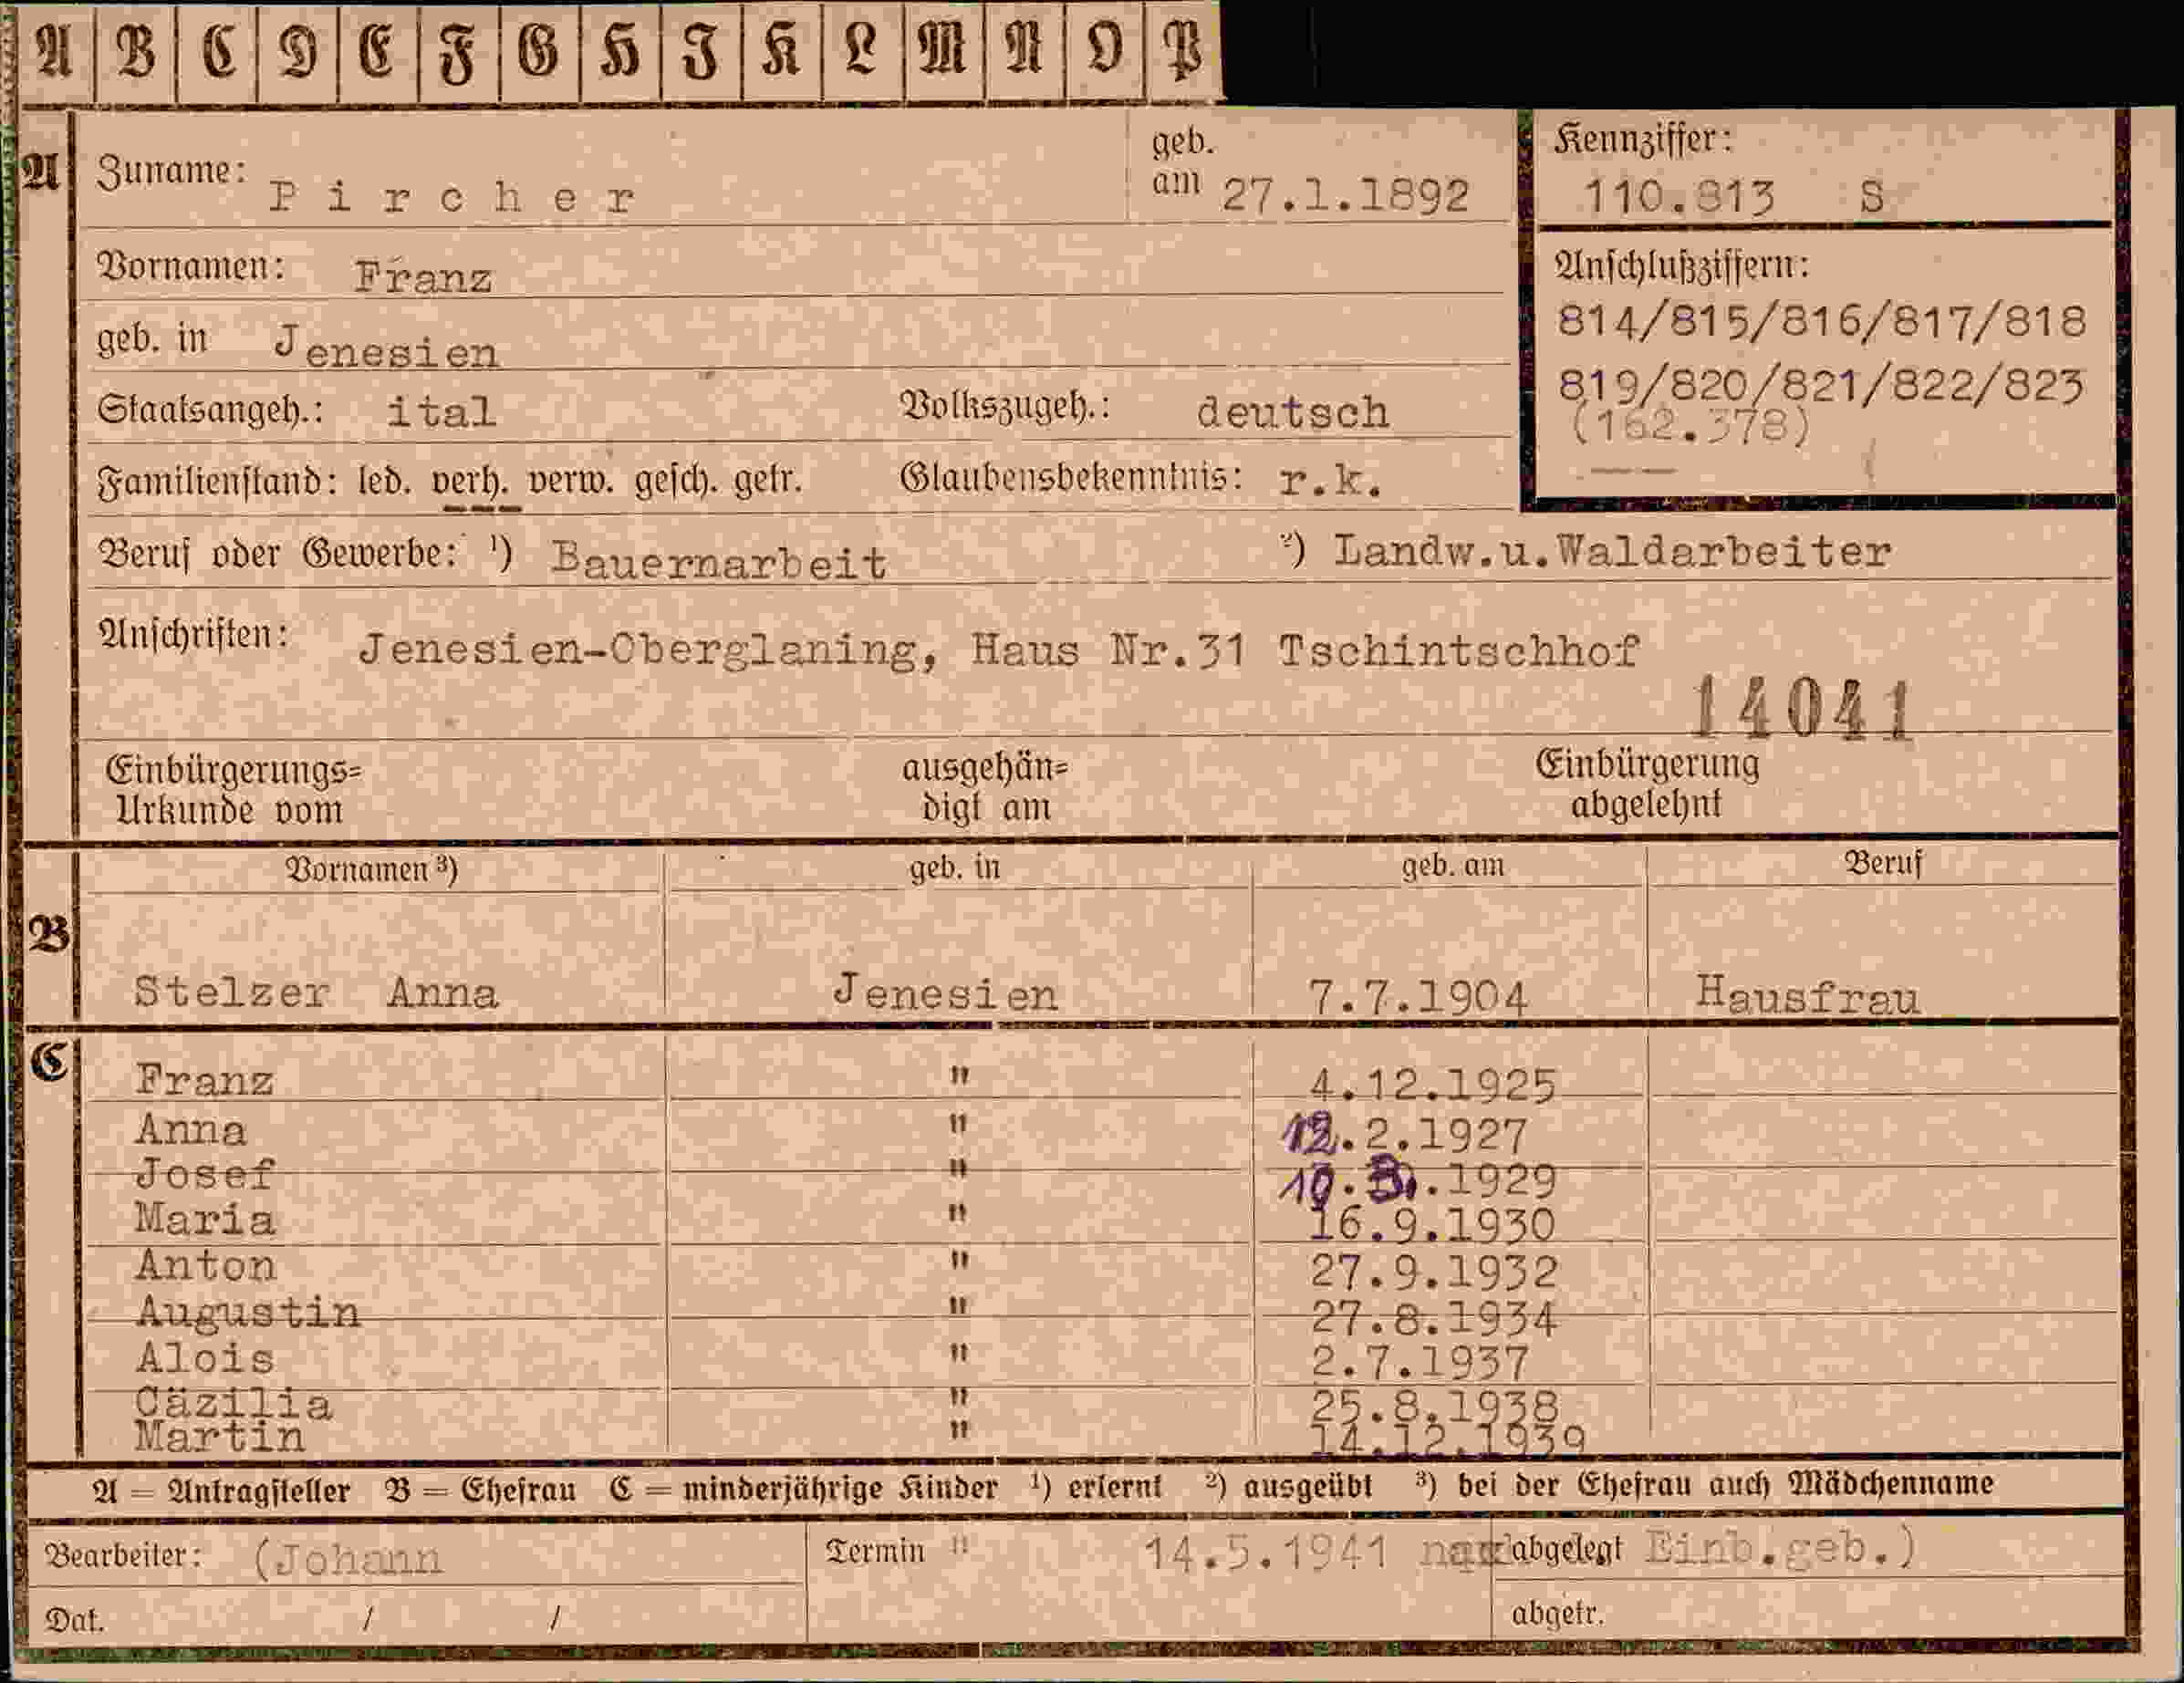 A B C D E F G H J K L M N O P
A Zuname: Pircher geb. am 27.1.1892 Kennziffer: 110.813 S
Vornamen: Franz Anschlußziffern:
geb. in Jenesien 814/815/816/817/818
Staatsangeh.: ital Volkszugeh.: deutsch 819/820/821/822/823
(162.378)
Familienstand: led. verh. verw. gesch. getr. Glaubensbekenntnis: r.k.
Beruf oder Gewerbe: ¹) Bauernarbeit ²) Landw.u.Waldarbeiter
Anschriften: Jenesien-Oberglaning, Haus Nr.31 Tschintschhof
14041
Einbürgerungs= ausgehän= Einbürgerung
Urkunde vom digt am abgelehnt
Vornamen ³) geb. in geb. am Beruf
B Stelzer Anna Jenesien 7.7.1904 Hausfrau
C Franz " 4.12.1925
Anna " 12.2.1927
Josef " 10. .1929
Maria " 16.9.1930
Anton " 27.9.1932
Augustin " 27.8.1934
Alois " 2.7.1937
Cäzilia " 25.8.1938
Martin " 14.12.1939
A = Antragsteller B = Ehefrau C = minderjährige Kinder ¹) erlernt ²) ausgeübt ³) bei der Ehefrau auch Mädchenname
Bearbeiter: (Johann Termin " 14.5.1941 abgelegt Einb.geb.)
Dat. / / abgetr.